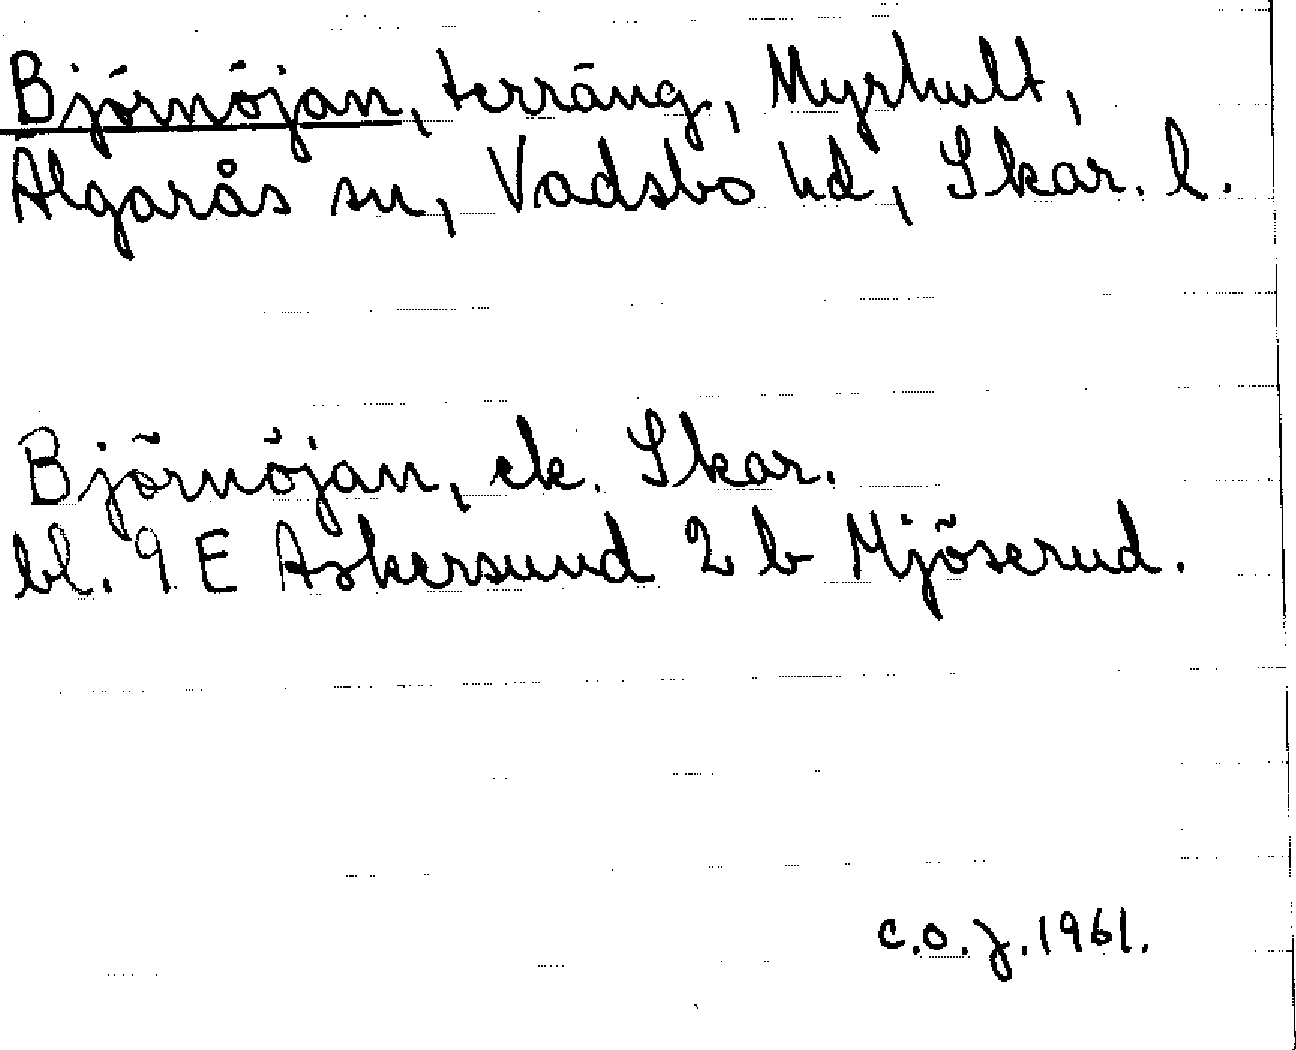 Björnöjan, terräng, Myrhult,
Älgarås sn, Vadsbo hd, Skar. l.
Björnöjan, ek. Skar.
bl. 9 E Askersund 2 b Mjöserud.
C.O.J. 1961.